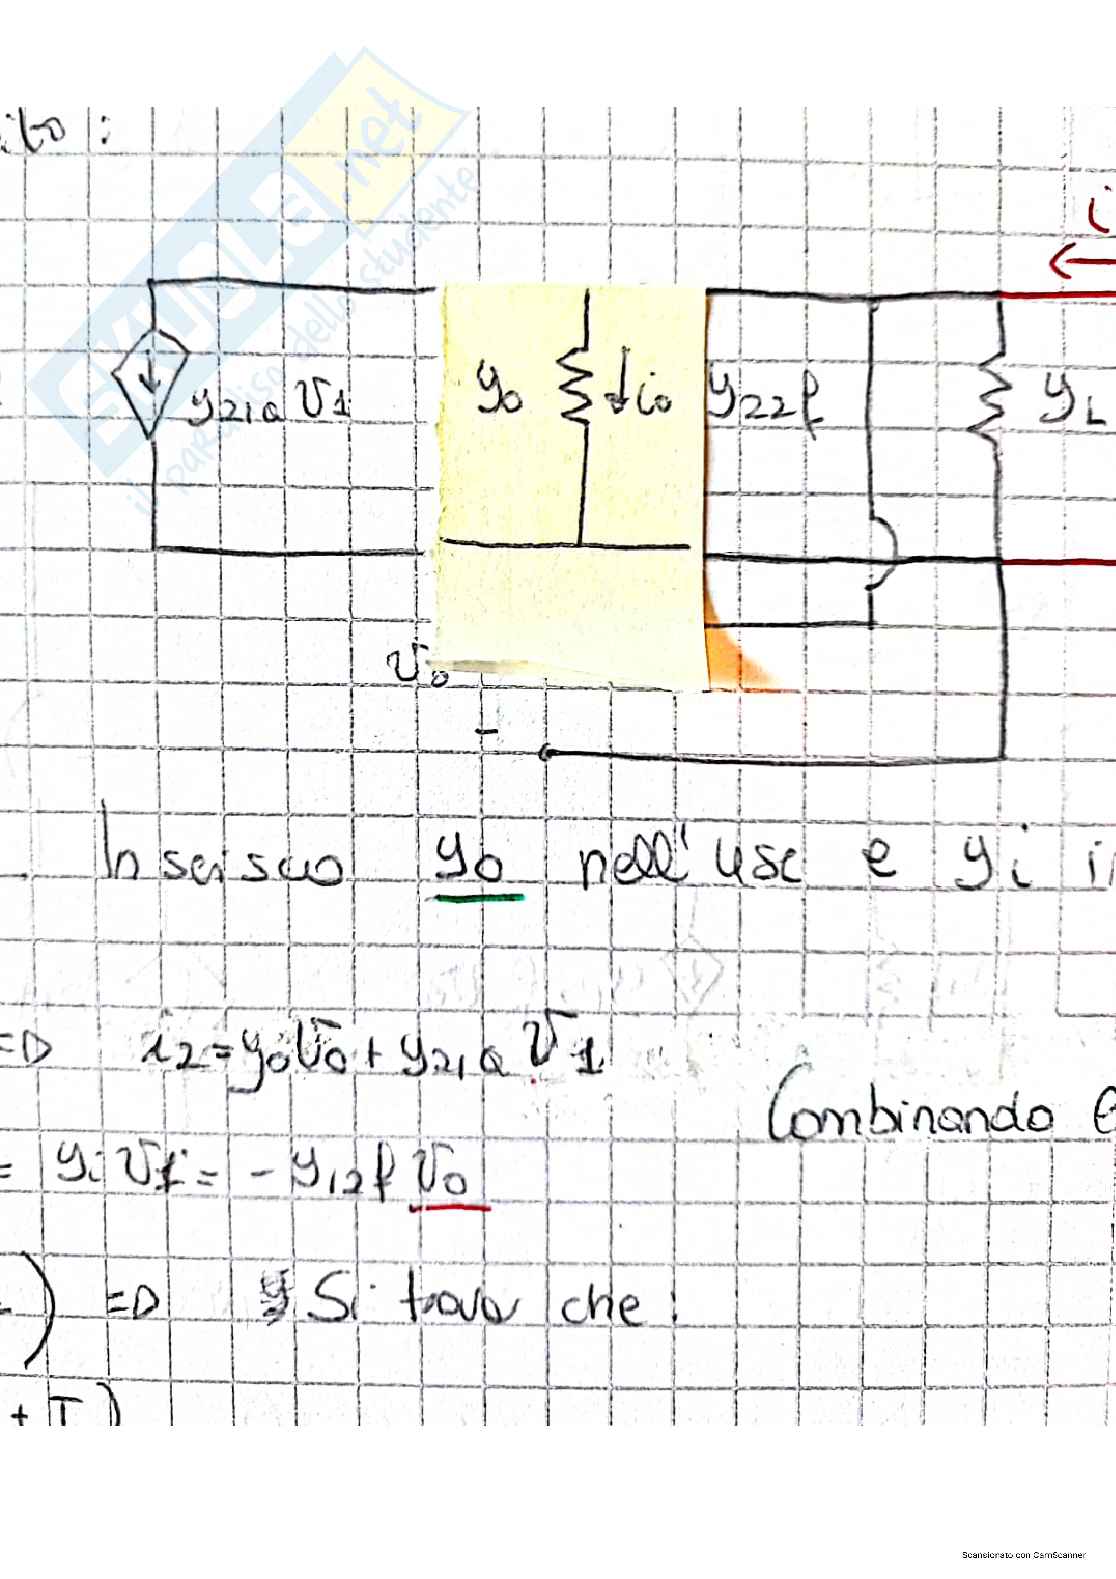 ito :
SKUOLA.net
il paradiso dello studente
i
y21a V1
y0
i0
y22f
yL
V0
-
Inserisco y0 nell'usc e yi in
=D i2=y0V0+y21a V1
Combinando e
= yi V1= -y12f V0
) =D Si trova che:
+ T)
Scansionato con CamScanner